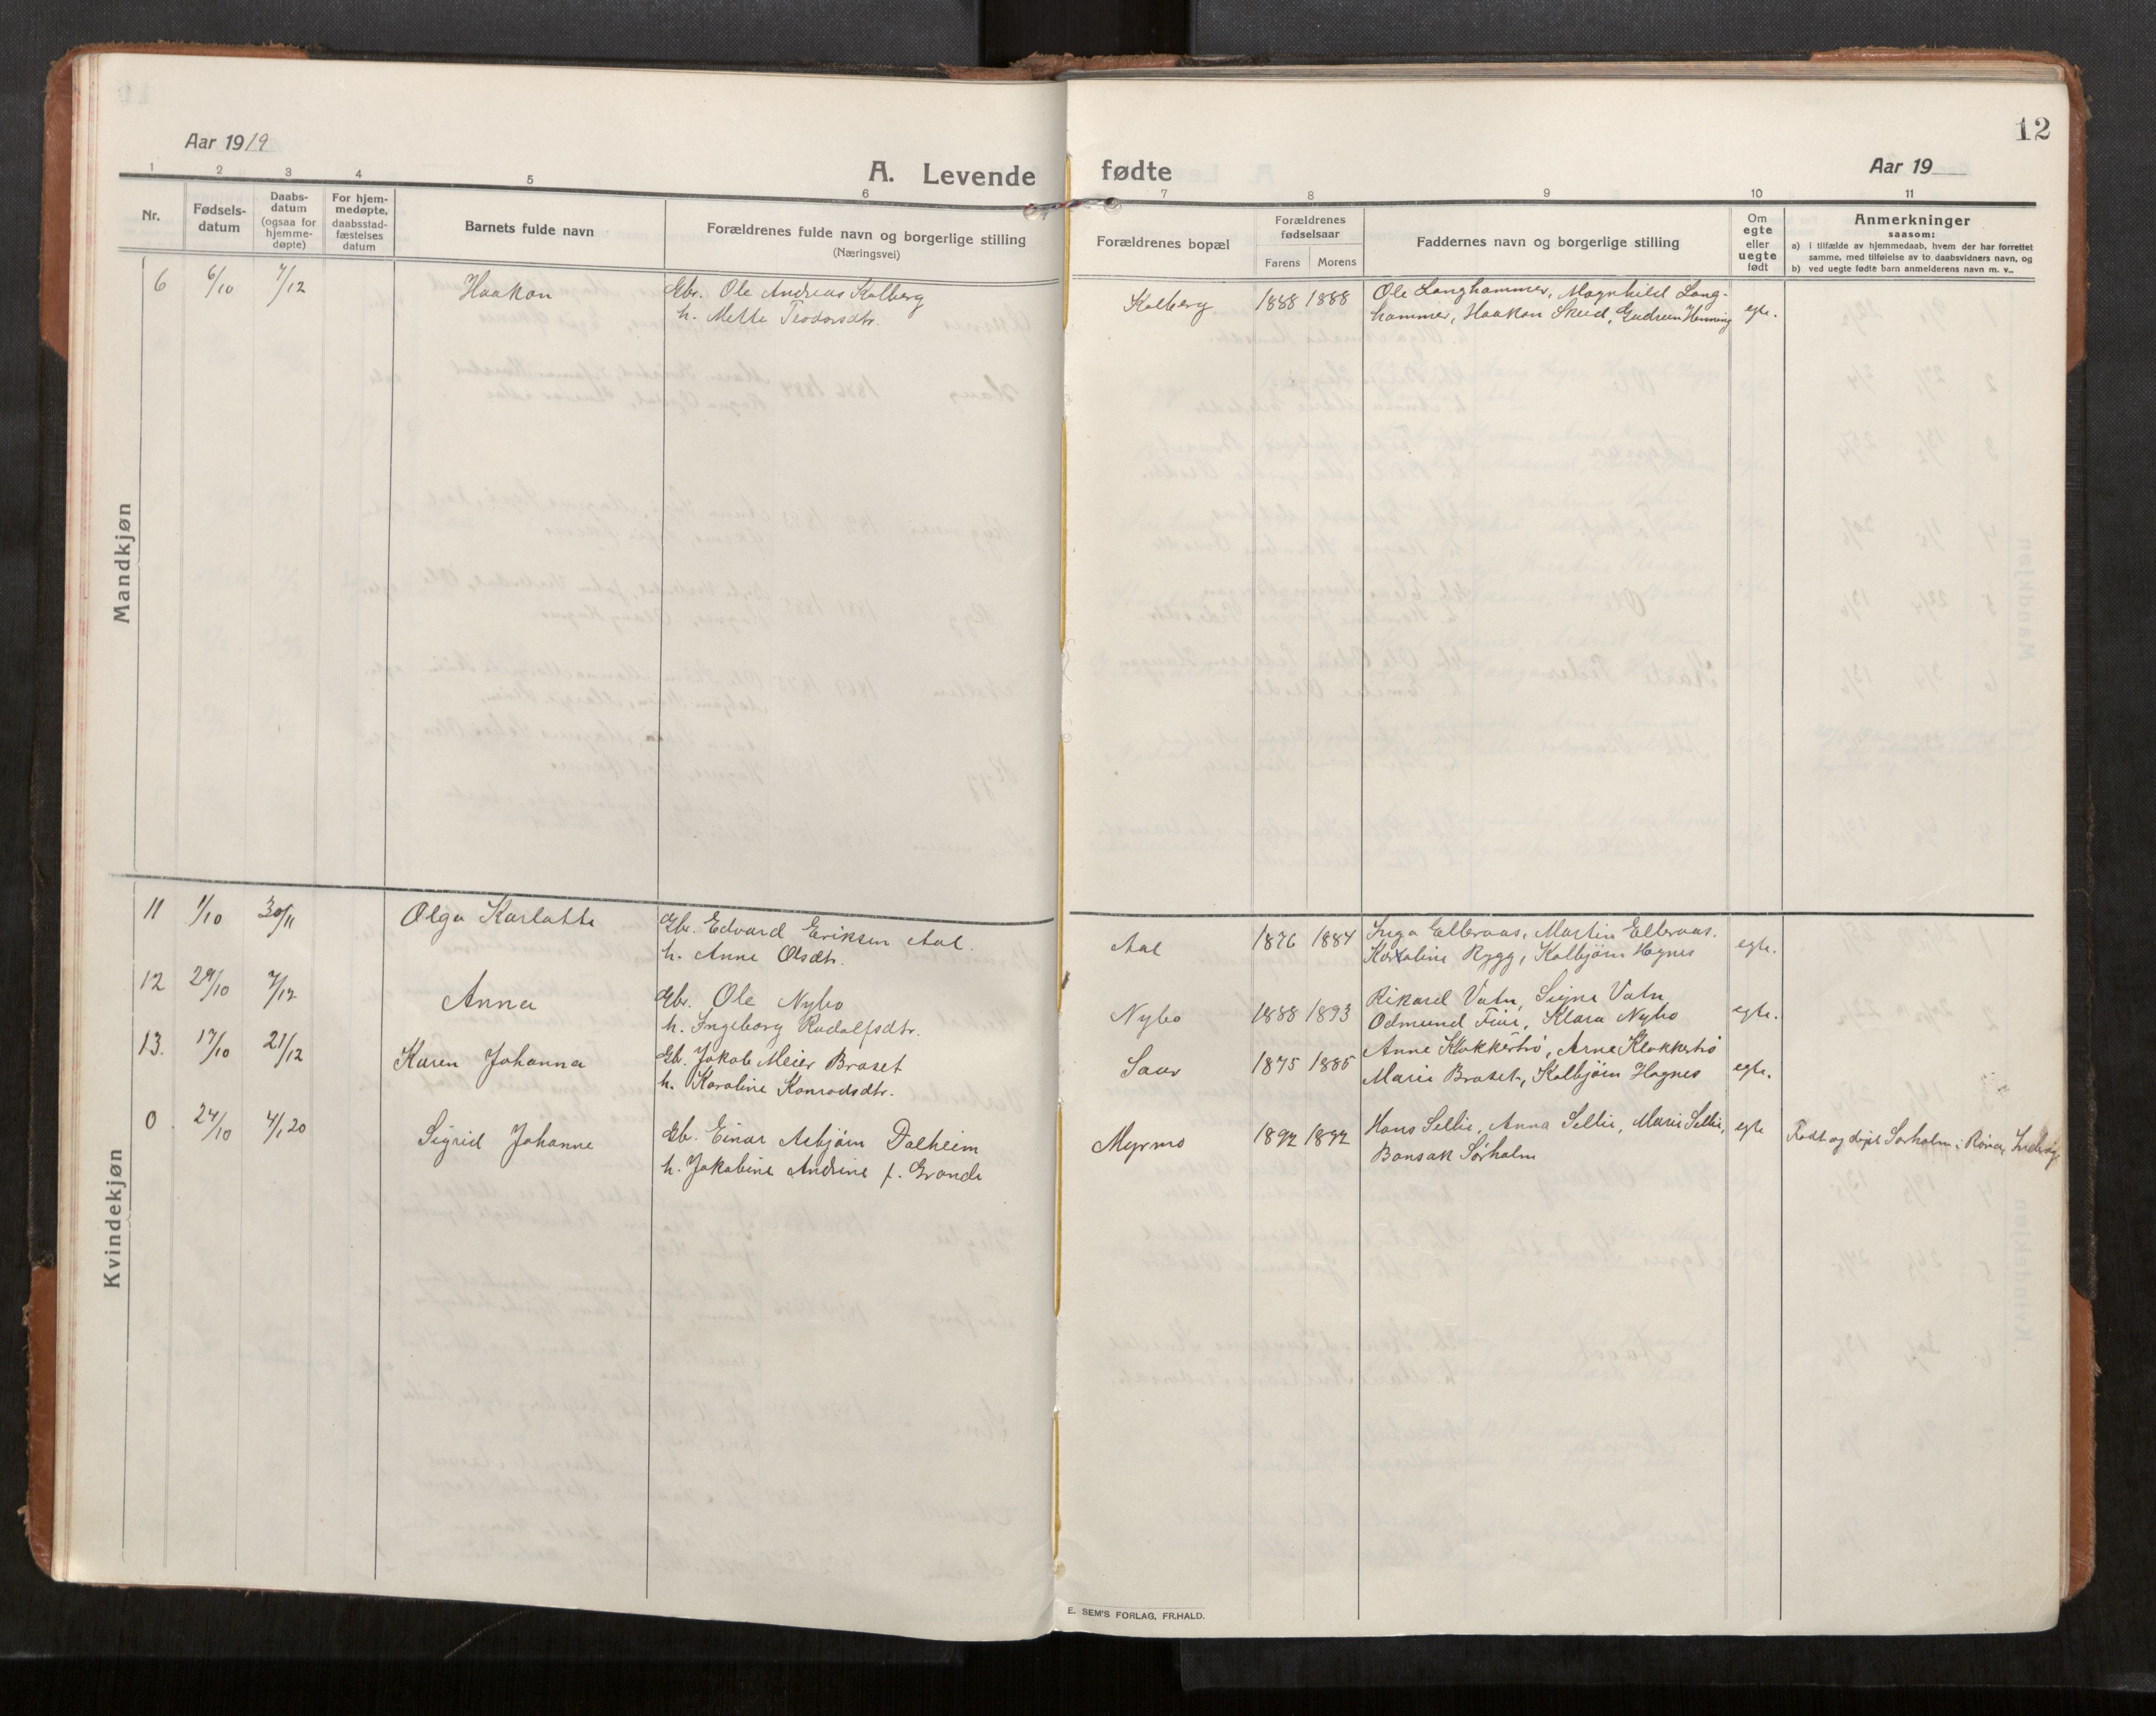 Aar 1919
A. Levende fødte
Aar 19
12
1 2 3 4 5 6 7 8 9 10 11
Nr.
Fødsels-
datum
Daabs-
datum
(ogsaa for
hjemme-
døpte)
For hjem-
medøpte,
daabsstad-
fæstelses
datum
Barnets fulde navn
Forældrenes fulde navn og borgerlige stilling
(Næringsvei)
Forældrenes bopæl
Forældrenes
fødselsaar
Farens Morens
Faddernes navn og borgerlige stilling
Om
egte
eller
uegte
født
Anmerkninger
saasom:
a) i tilfælde av hjemmedaab, hvem der har forrettet
samme, med tilføielse av to daabsvidners navn, og
b) ved uegte fødte barn anmelderens navn m. v..
Mandkjøn
6 6/10 7/12 Haakon Gbr. Ole Andreas Kolberg Kolberg 1888 1888 Ole Langhammer, Magnhild Lang- egte.
h. Mette Teodorsdtr. hammer, Haakon Skeid, Gudrun Henning
Kvindekjøn
11 1/10 30/11 Olga Karlotte Gbr. Edvard Eriksen Aal. Aal 1876 1884 Inga Elleraas, Martin Elleraas. egte.
h. Anne Olsdtr. Karoline Rygg, Kolbjørn Hognes
12 29/10 7/12 Anna Gbr. Ole Nybo Nybo 1888 1893 Rikard Vatn, Signe Vatn egte.
h. Ingeborg Rudolfsdtr. Odmund Five, Klara Nybo
13. 17/10 21/12 Karen Johanna Gb. Jakob Meier Braset Saur 1875 1885 Anne Klokkerhø, Arne Klokkerhø egte.
h. Karoline Konradsdtr. Marie Braset, Kolbjørn Hognes
0 24/10 4/1 20 Sigrid Johanne Gb. Einar Asbjørn Dalheim Myrmo 1892 1892 Hans Sellie, Anna Sellie, Marie Sellie, egte Født og døpt Sørholm i Røra, Inderøy
h. Jakobine Andrine f. Grande Bonsak Sørholm
E. SEM'S FORLAG, FR.HALD.